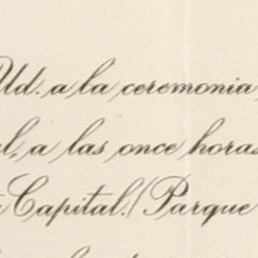 Ud. a la ceremonia
l, a las once horas
Capital. (Parque